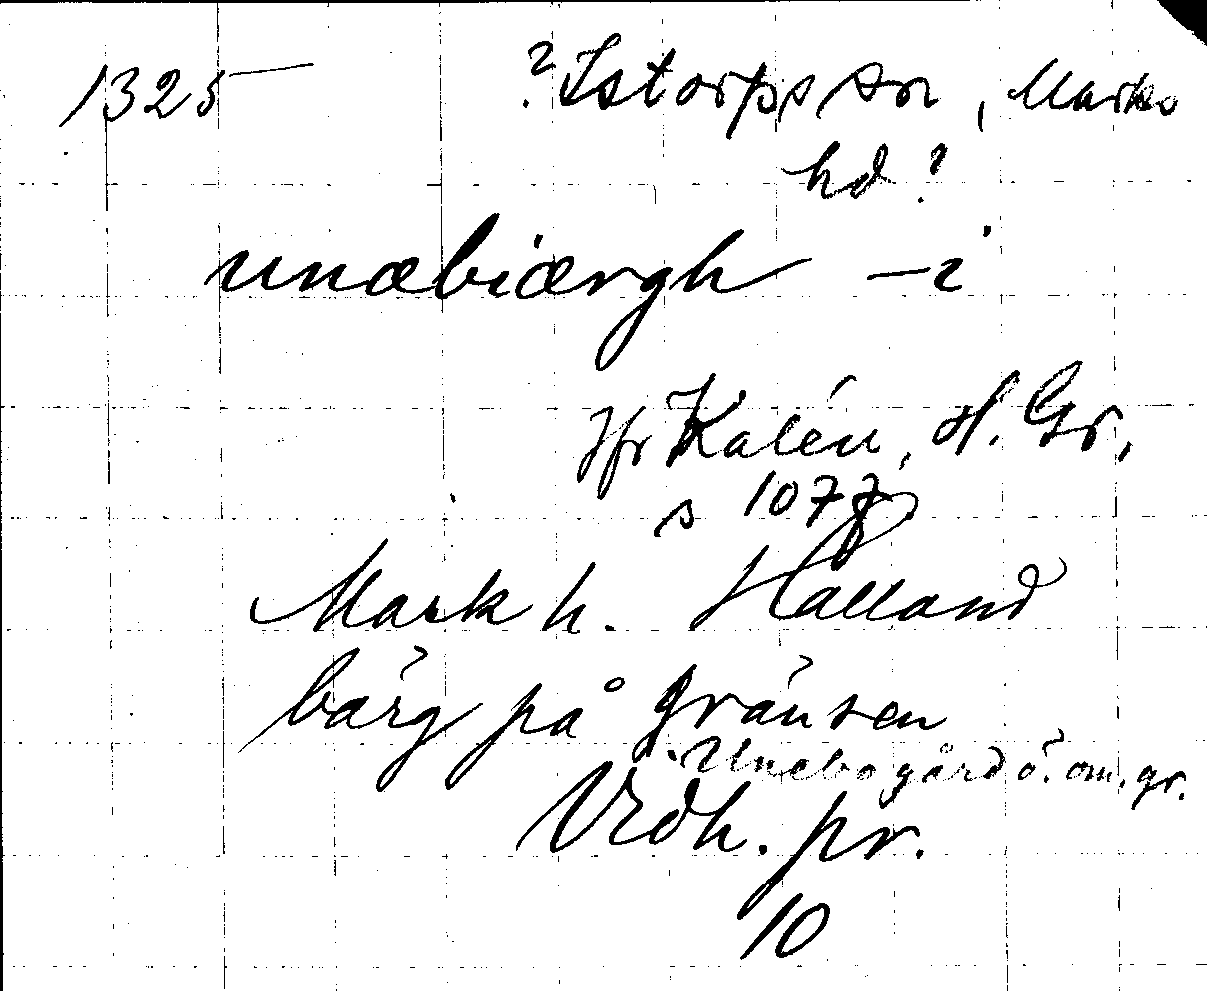 1325 ? Istorps sn, Marks
hd?
unæbiærgh – i
Jfr Kalén, H. Gr.,
s 107 f
Mark h. Halland
bärg på gränsen
Unebo gård ö. om. gr.
Vidh. pr.
10